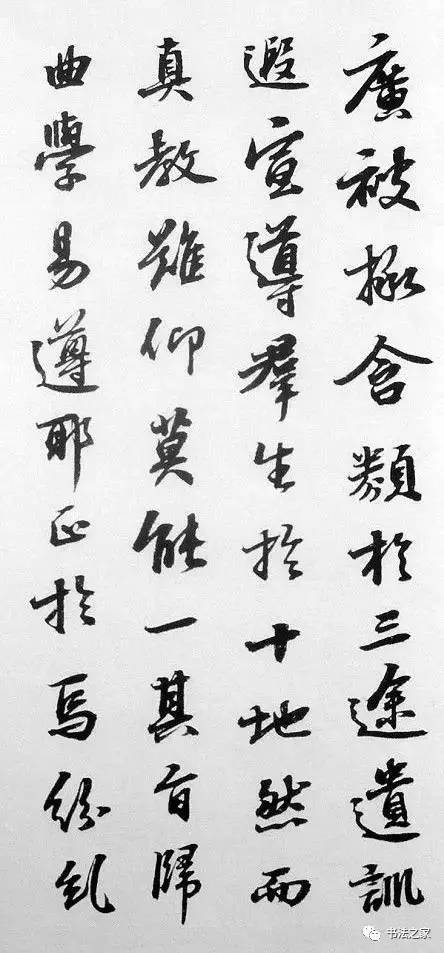 廣被拯含類於三途遺訓
遐宣導羣生於十地然而
真教難仰莫能一其旨歸
曲學易遵耶正於焉紛乱
书法之家